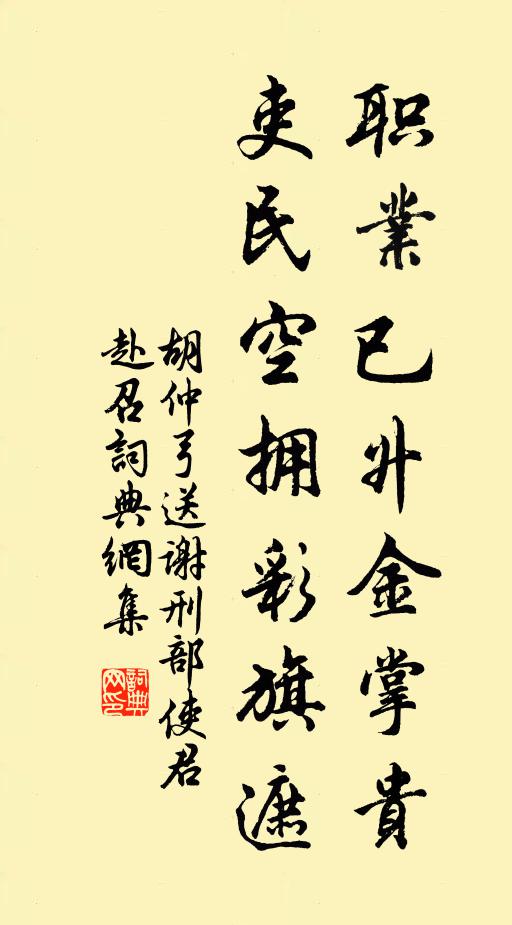 职業已升金掌貴
吏民空拥彩旗遮
胡仲弓送谢刑部使君
赴召詞典網集
詞典网印